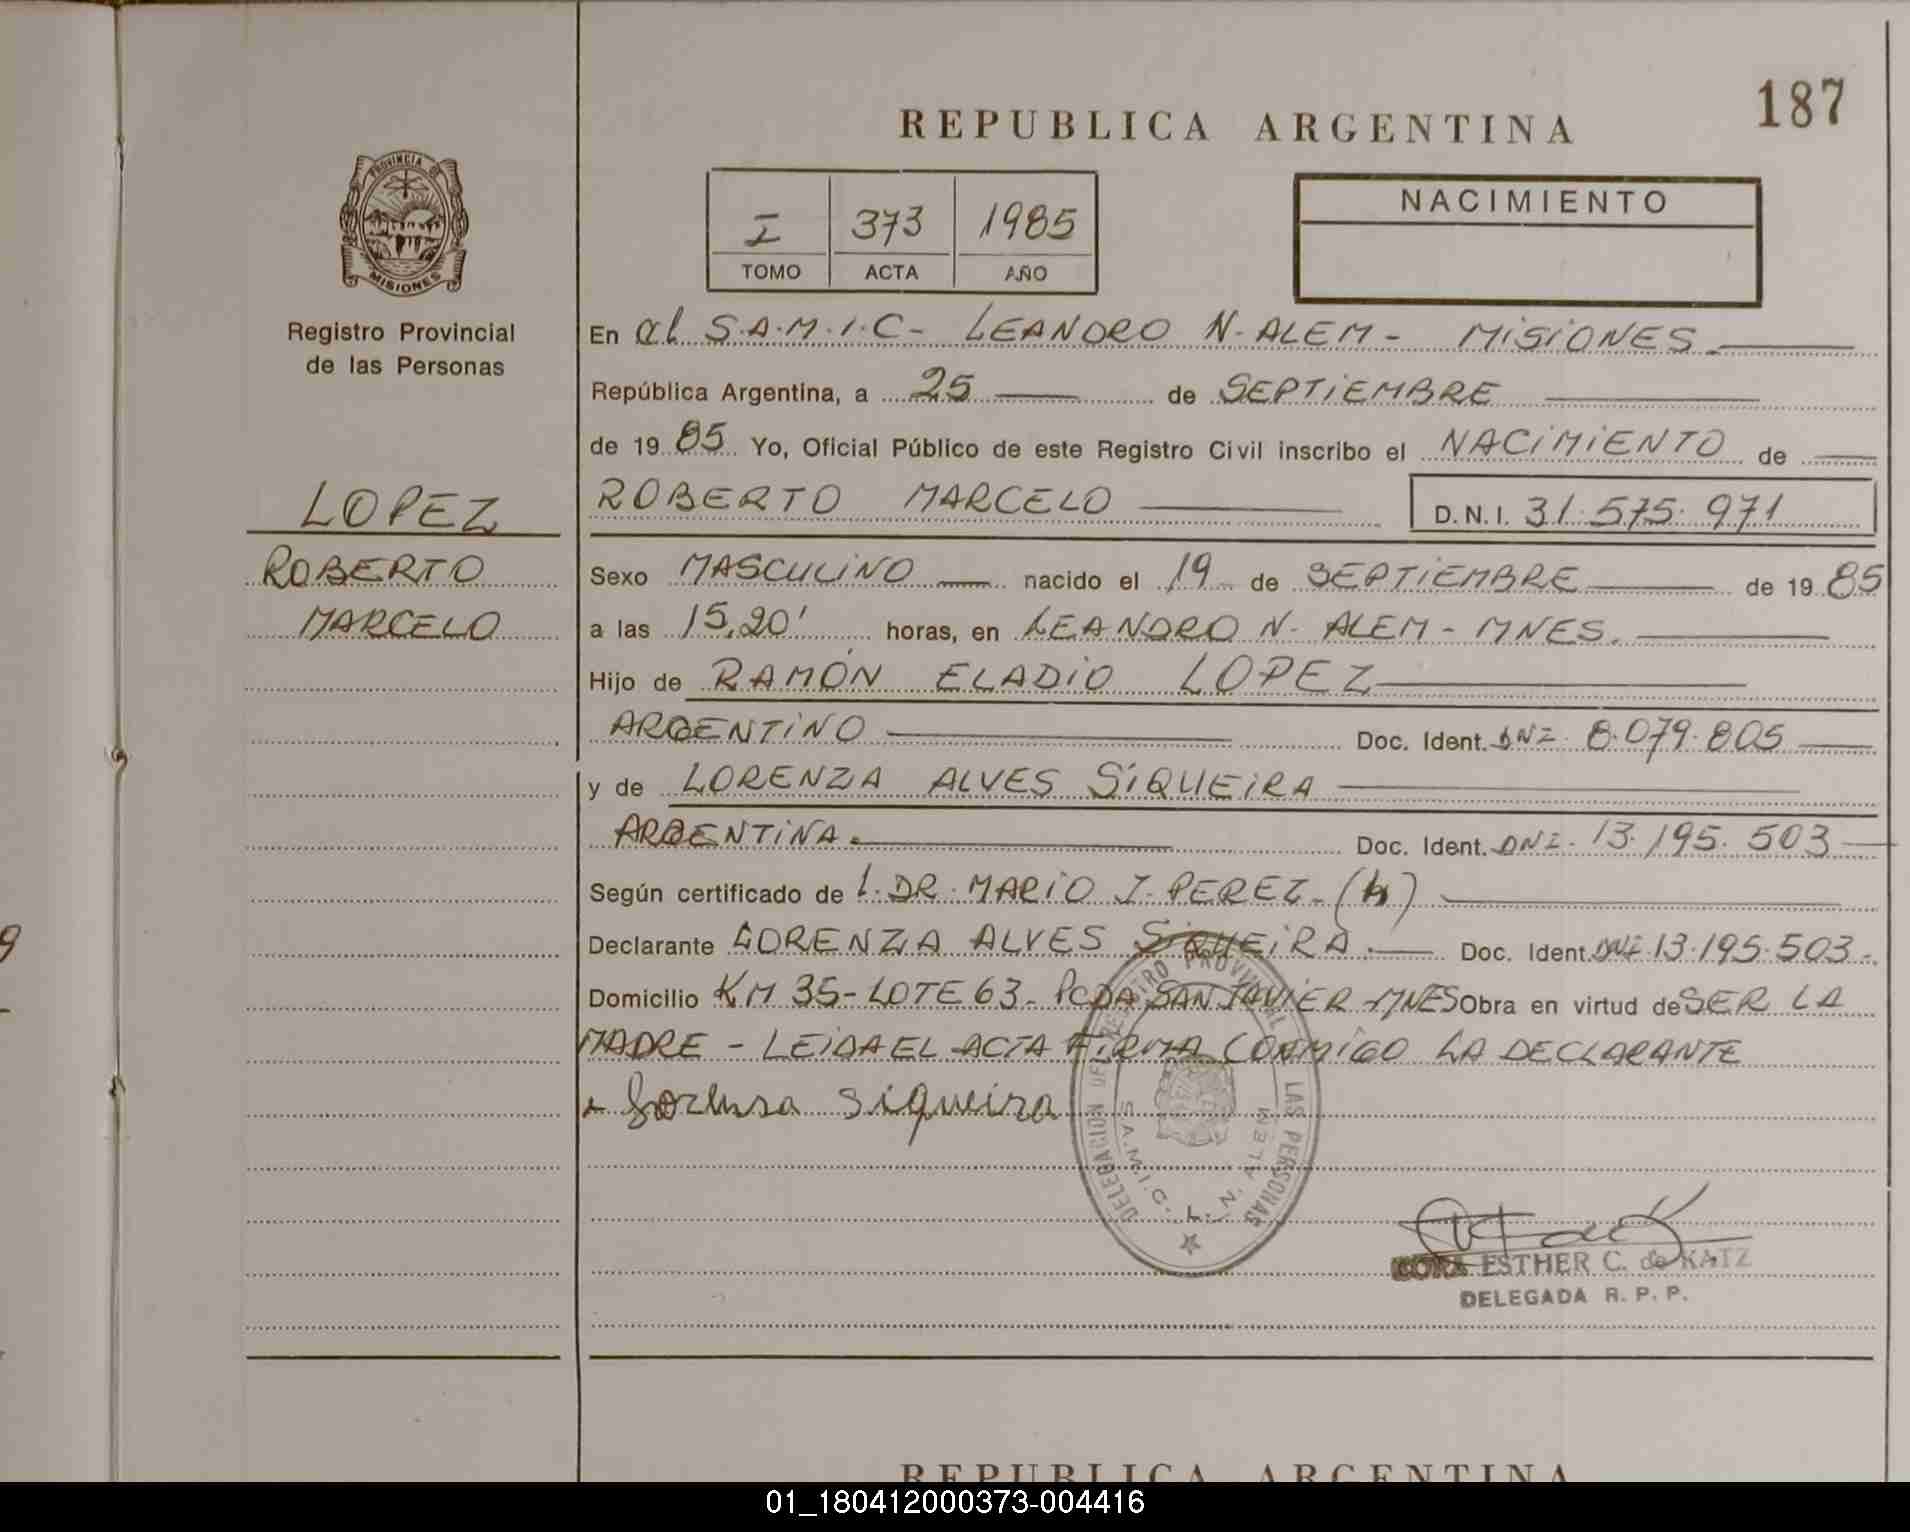 187
REPUBLICA ARGENTINA
PROVINCIA DE
MISIONES
Registro Provincial
de las Personas
I 373 1985
TOMO ACTA AÑO
NACIMIENTO
LOPEZ
ROBERTO
MARCELO
En el S.A.M.I.C- LEANDRO N-ALEM- MISIONES.
República Argentina, a 25 de SEPTIEMBRE
de 1985 Yo, Oficial Público de este Registro Civil inscribo el NACIMIENTO de
ROBERTO MARCELO D.N.I. 31.575.971
Sexo MASCULINO nacido el 19 de SEPTIEMBRE de 1985
a las 15,20' horas, en LEANDRO N- ALEM- MNES.
Hijo de RAMÓN ELADIO LOPEZ
ARGENTINO Doc. Ident. DNI. 8.079.805
y de LORENZA ALVES SIQUEIRA
ARGENTINA. Doc. Ident. DNI. 13.195.503
Según certificado de l. DR. MARIO I. PEREZ-(h)
Declarante LORENZA ALVES SIQUEIRA. Doc. Ident. DNI 13.195.503-
Domicilio KM 35-LOTE 63- PCDA SAN JAVIER-MNES Obra en virtud de SER LA
MADRE - LEIDA EL ACTA FIRMA CONMIGO LA DECLARANTE
Siqueira
DELEGACION DEL REGISTRO PROVINCIAL DE LAS PERSONAS
S.A.M.I.C. L. N. ALEM
CORA ESTHER C. de KATZ
DELEGADA R. P. P.
REPUBLICA ARGENTINA
01_180412000373-004416